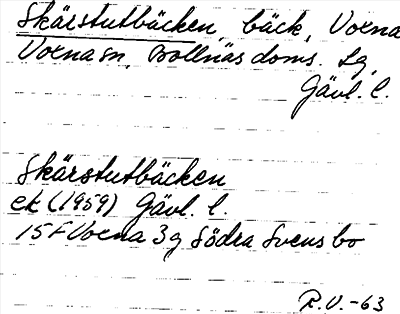 Skärstutbäcken, bäck, Voxna
Voxna sn, Bollnäs doms. Lg,
Gävl. l.
Skärstutbäcken
ek (1959) Gävl. l.
15F Voxna 3g Södra Svensbo
R.V.-63